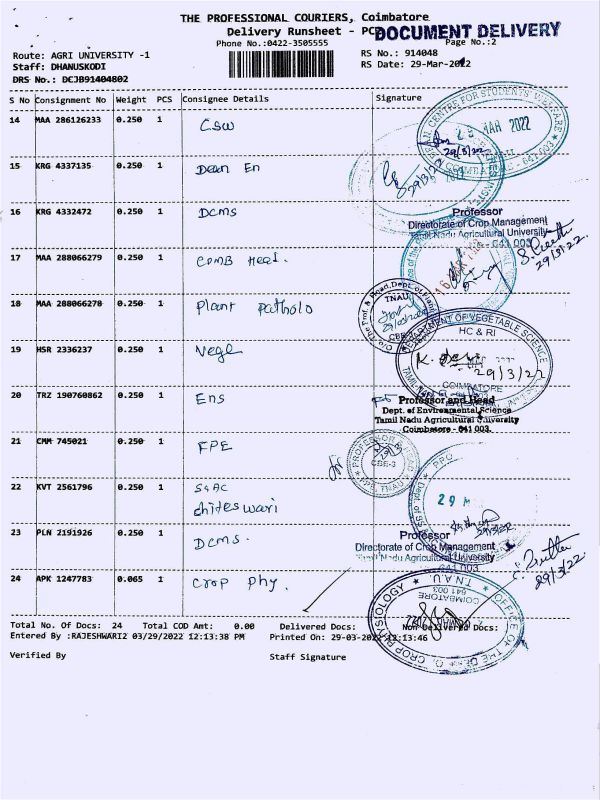 THE PROFESSIONAL COURIERS, Coimbatore
Delivery Runsheet - PC
DOCUMENT DELIVERY
Phone No.:0422-3505555
Page No.:2
Route: AGRI UNIVERSITY -1
RS No.: 914048
Staff: DHANUSKODI
RS Date: 29-Mar-2022
DRS No.: DCJB91404802
S No Consignment No Weight PCS Consignee Details Signature
14 MAA 286126233 0.250 1 CSW
15 KRG 4337135 0.250 1 Dean En
16 KRG 4332472 0.250 1 DCMS
17 MAA 288066279 0.250 1 CPMB Head.
18 MAA 288066278 0.250 1 Plant Patholo
19 HSR 2336237 0.250 1 Vege
20 TRZ 190760862 0.250 1 Ens
21 CMM 745021 0.250 1 FPE
22 KVT 2561796 0.250 1 S&AC
chiteswari
23 PLN 2191926 0.250 1 DCMS.
24 APK 1247783 0.065 1 Crop Phy.
CENTRE FOR STUDENTS WELFARE
MAR 2022
29/3/22
29/3/22
Professor
Directorate of Crop Management
Tamil Nadu Agricultural University
641 003
29/3/22.
O/o The Prof. & Head, Dept. of Plant
TNAU
DEPARTMENT OF VEGETABLE SCIENCE
HC & RI
29/3/22
COIMBATORE
Professor and Head
Dept. of Environmental Science
Tamil Nadu Agricultural University
Coimbatore - 641 003.
PROFESSOR
CBE-3
FPE, TNAU
29 M
Professor
Directorate of Crop Management
Tamil Nadu Agricultural University
641 003
29/3/22.
OFFICE OF THE
CROP PHYSIOLOGY
T.N.A.U.
COIMBATORE
641 003
Total No. Of Docs: 24 Total COD Amt: 0.00 Delivered Docs: Non Delivered Docs:
Entered By :RAJESHWARI2 03/29/2022 12:13:38 PM Printed On: 29-03-2022 12:13:46
Verified By Staff Signature